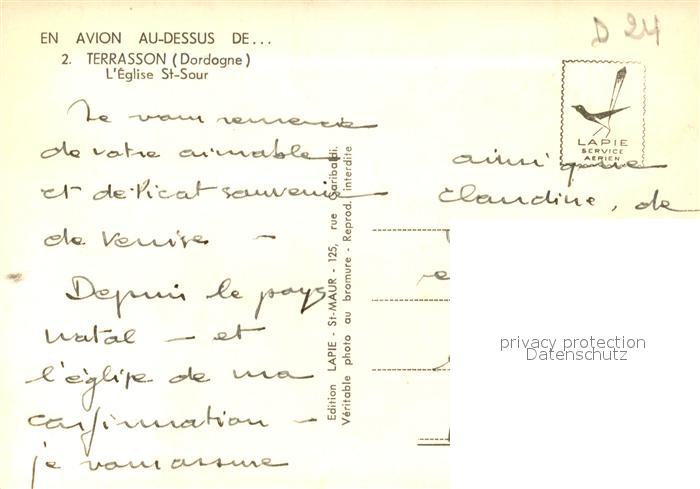 EN AVION AU-DESSUS DE...
2. TERRASSON (Dordogne)
L'Église St-Sour
D 24
LAPIE
SERVICE
AERIEN
Je vous remercie
de votre aimable
et délicat souvenir
de Venise —
Depuis le pays
natal — et
l'église de ma
confirmation —
je vous assure
ainsi que
Claudine, de
Edition LAPIE - St-MAUR - 125, rue Garibaldi.
Véritable photo au bromure - Reprod. interdite
privacy protection
Datenschutz